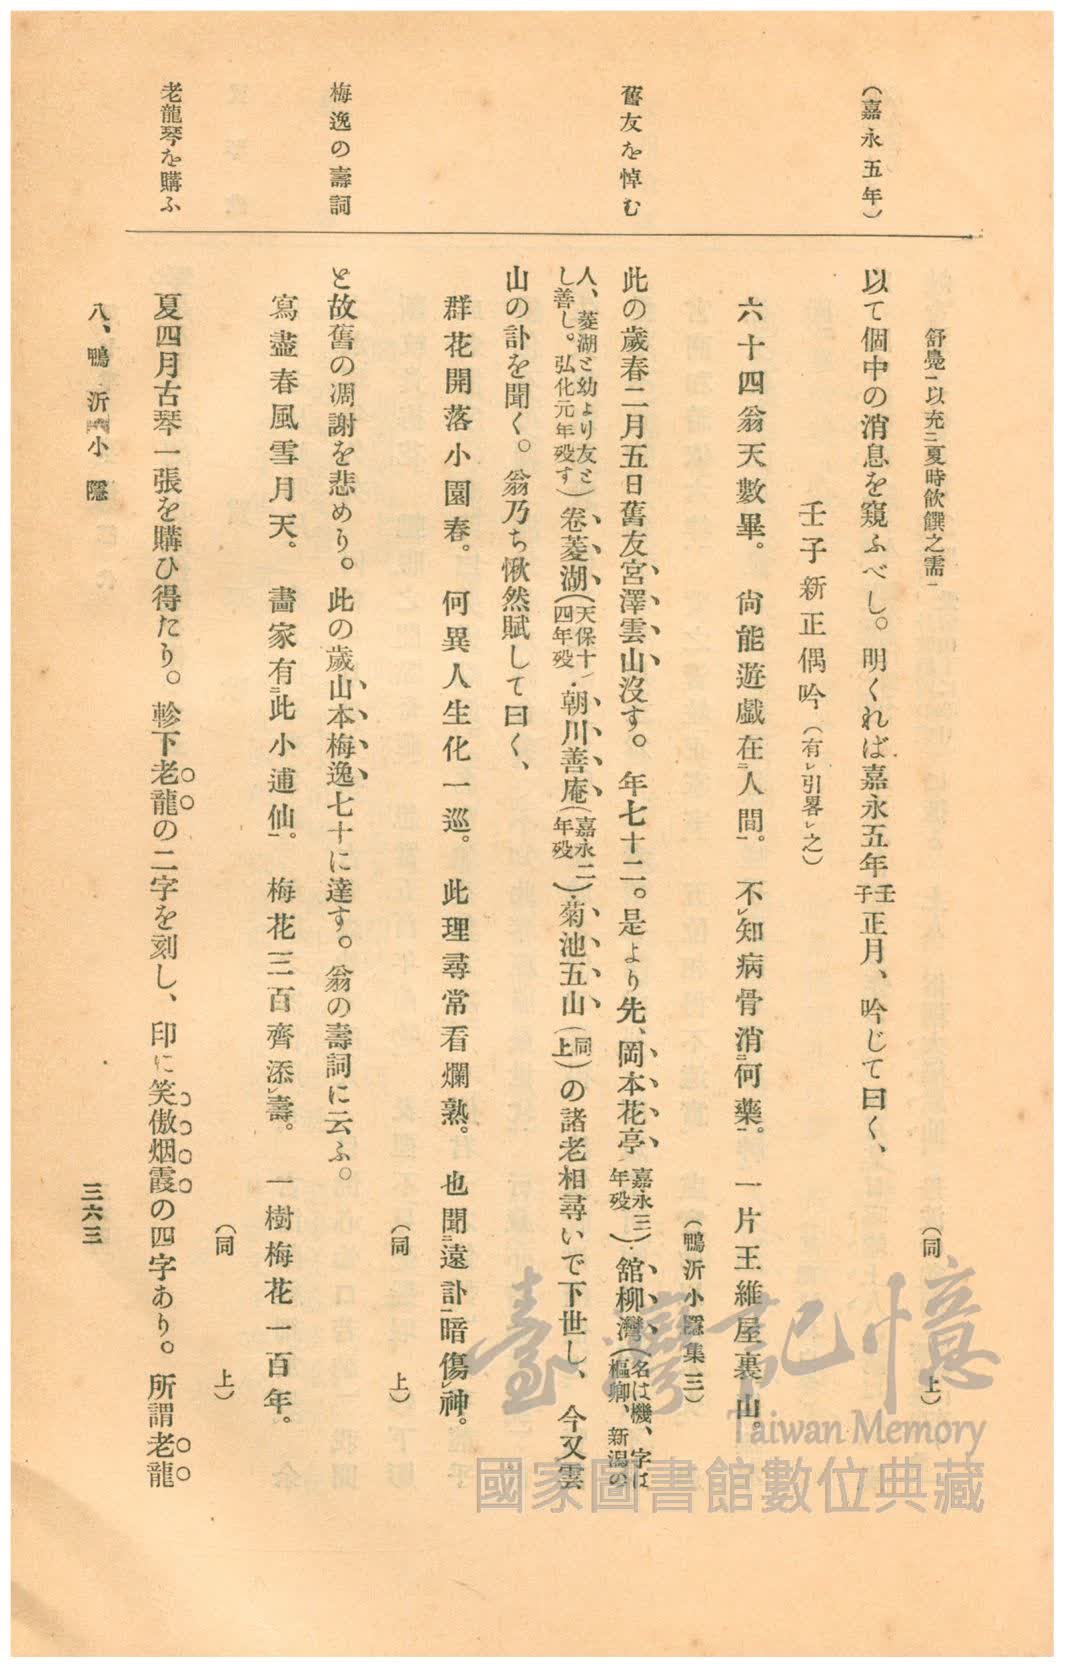 (嘉永五年)
舊友を悼む
梅逸の壽詞
老龍琴を購ふ
舒鳧一以充二夏時飮饌之需一 (同上)
以て個中の消息を窺ふべし。明くれば嘉永五年壬子正月、吟じて曰く、
壬子新正偶吟(有レ引畧レ之)
六十四翁天數畢。 尙能遊戲在二人間一。 不レ知病骨消二何藥一。 一片王維屋裏山。
(鴨沂小隱集三)
此の歲春二月五日舊友宮澤雲山沒す。年七十二。是より先、岡本花亭(嘉永三年歿)・舘柳灣(名は機、字は樞卿、新潟の
人、菱湖と幼より友とし善し。弘化元年歿す)卷菱湖(天保十四年歿)・朝川善庵(嘉永二年歿)・菊池五山(同上)の諸老相尋いで下世し、今又雲
山の訃を聞く。翁乃ち愀然賦して曰く、
群花開落小園春。 何異人生化一巡。 此理尋常看爛熟。 也聞二遠訃一暗傷レ神。
(同上)
と故舊の凋謝を悲めり。此の歲山本梅逸七十に達す。翁の壽詞に云ふ。
寫盡春風雪月天。 畵家有二此小逋仙一。 梅花三百齊添レ壽。 一樹梅花一百年。
(同上)
夏四月古琴一張を購ひ得たり。軫下老龍の二字を刻し、印に笑傲烟霞の四字あり。所謂老龍
八、鴨沂小隱
三六三
臺灣記憶
Taiwan Memory
國家圖書館數位典藏